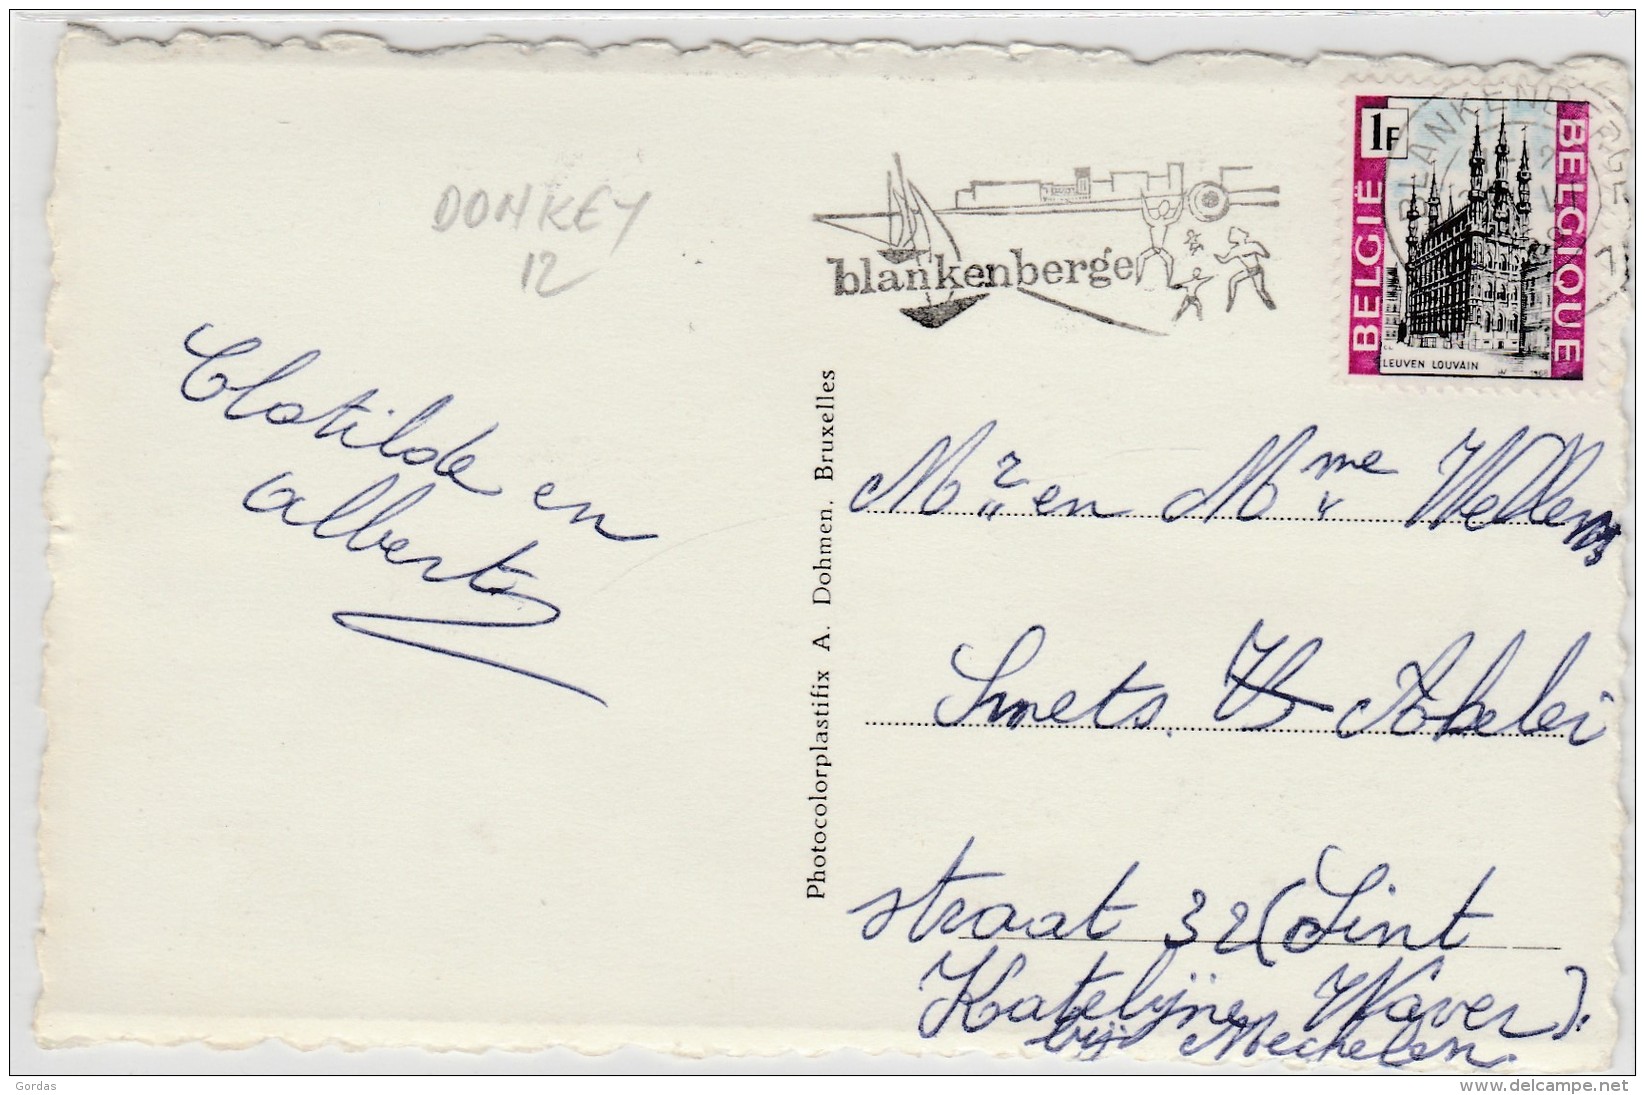 DONKEY
12
Clotilde en
Albert
Photocolorplastifix A. Dohmen. Bruxelles
blankenberge
BLANKENBERGE
1F
BELGIË
BELGIQUE
LEUVEN LOUVAIN
1968
Mr en Mme Wellens
Smets. Abelei
straat 32 (Sint
Katelijne Waver).
bij Mechelen.
Gordas
delcampe.net